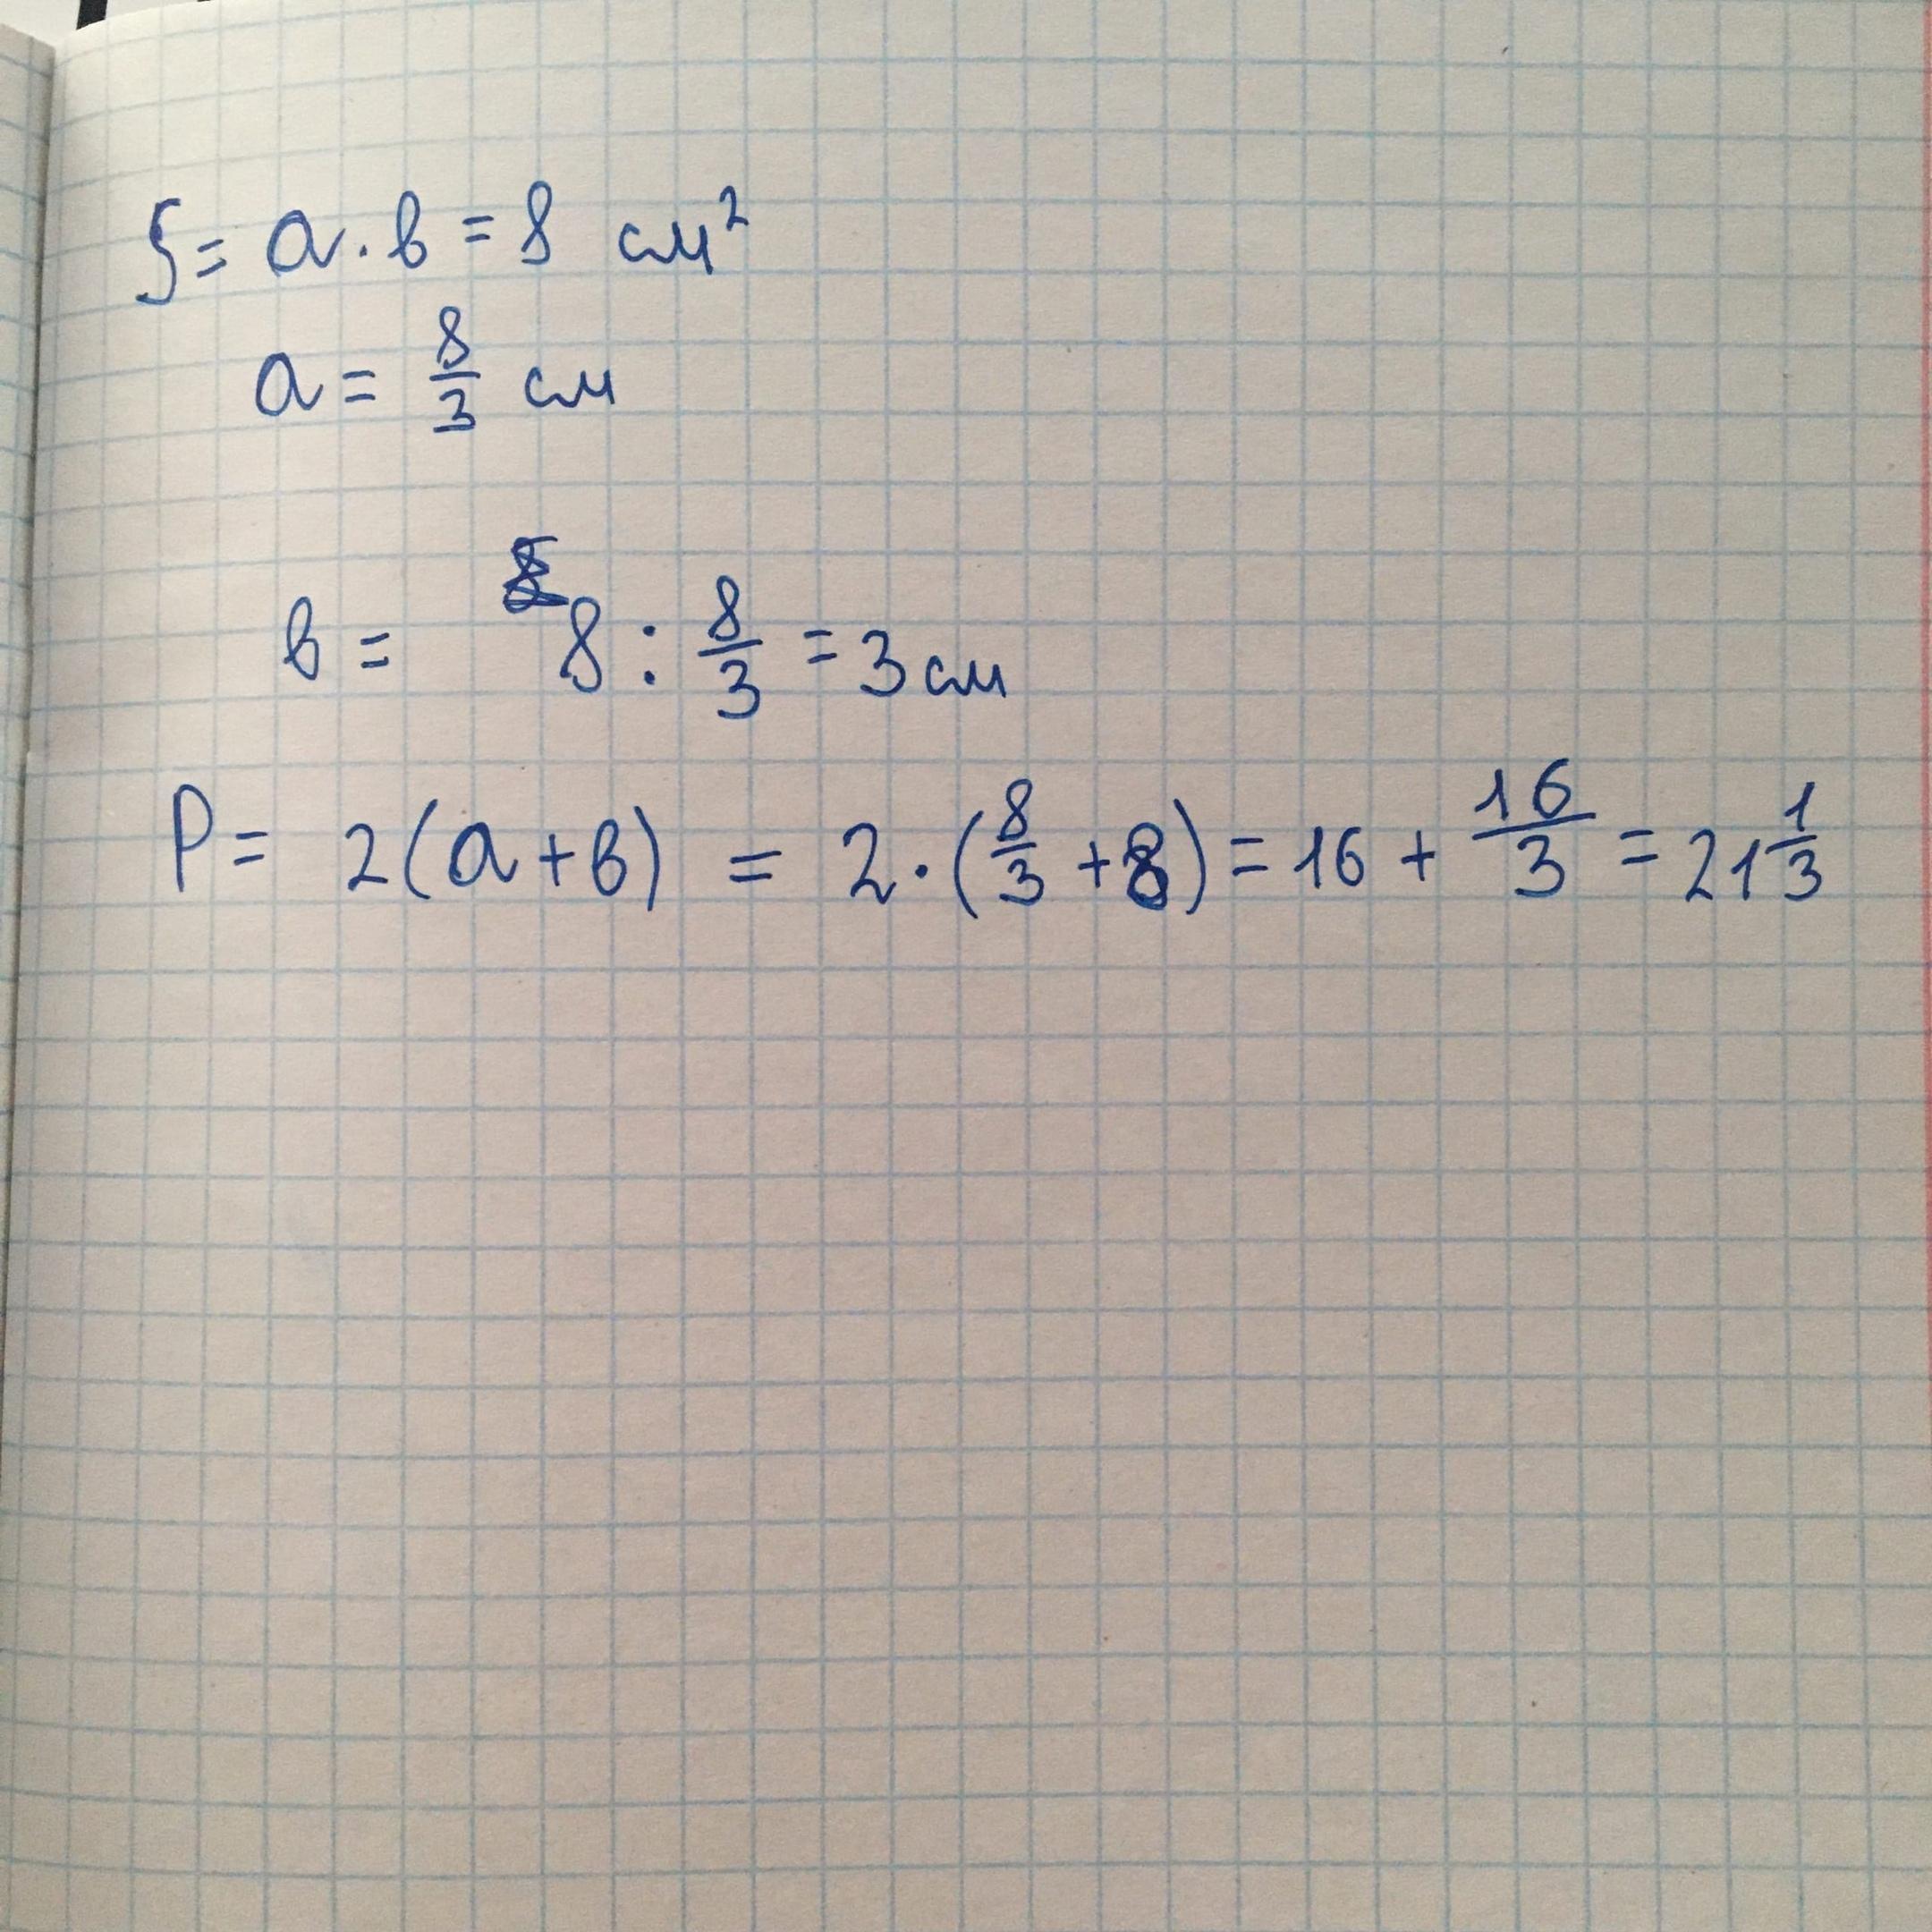 S = a · b = 8 см²
a = 8/3 см
b = 8 : 8/3 = 3 см
P = 2(a + b) = 2 · (8/3 + 8) = 16 + 16/3 = 21 1/3